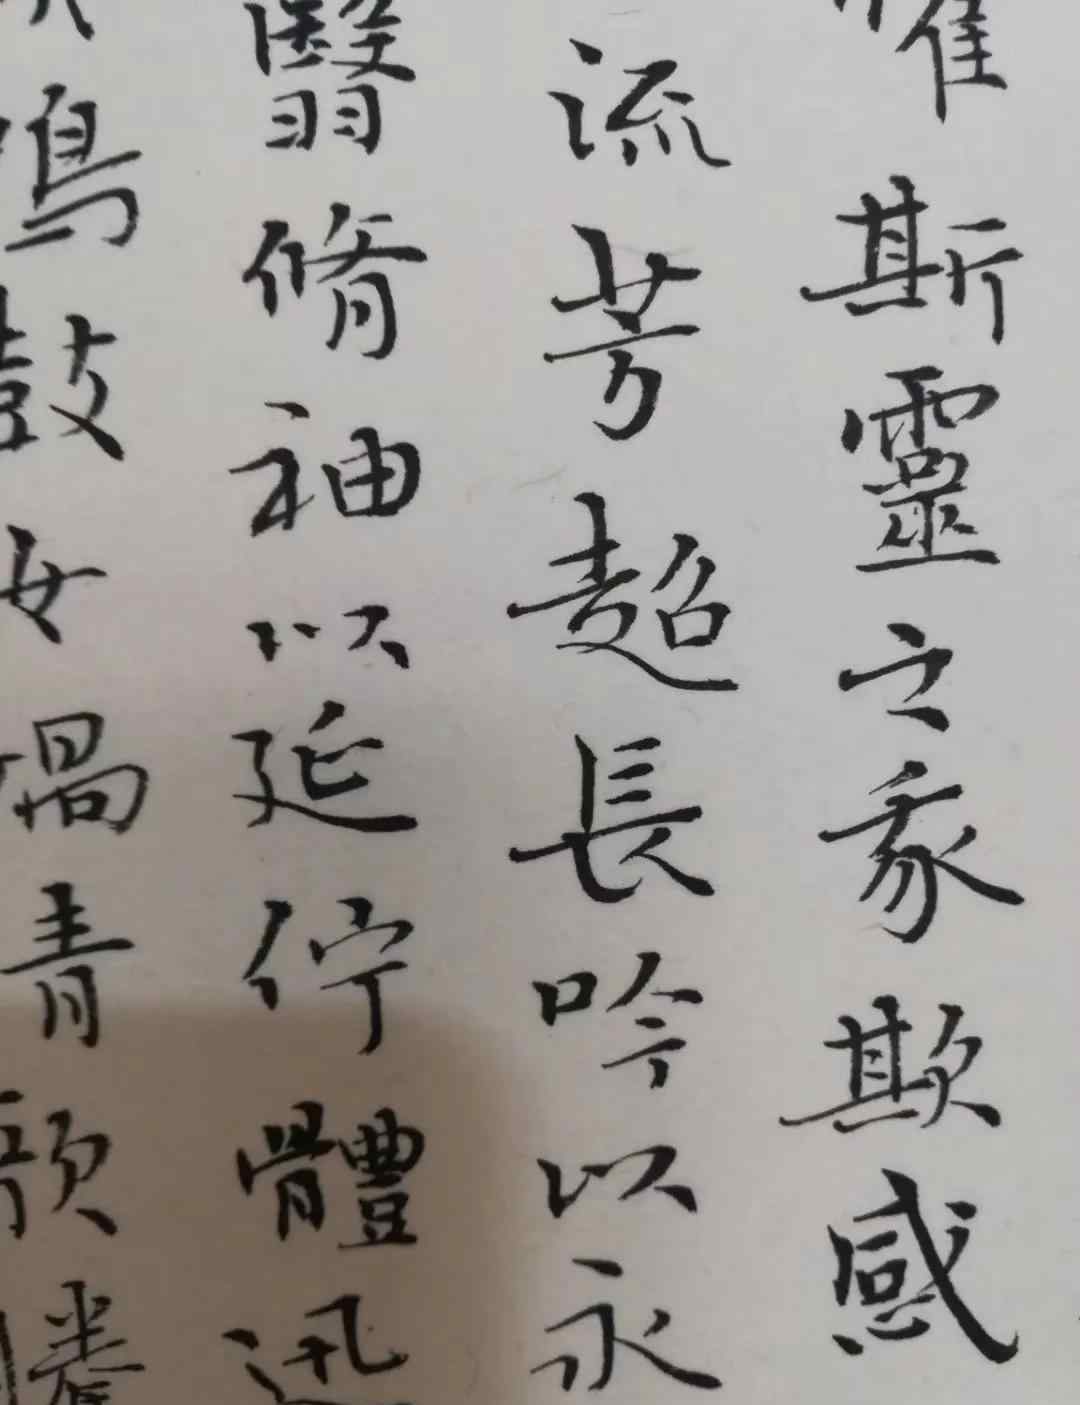 懼斯靈之我欺感
流芳超長吟以永
翳脩袖以延佇體迅
鳴鼓女媧清歌騰